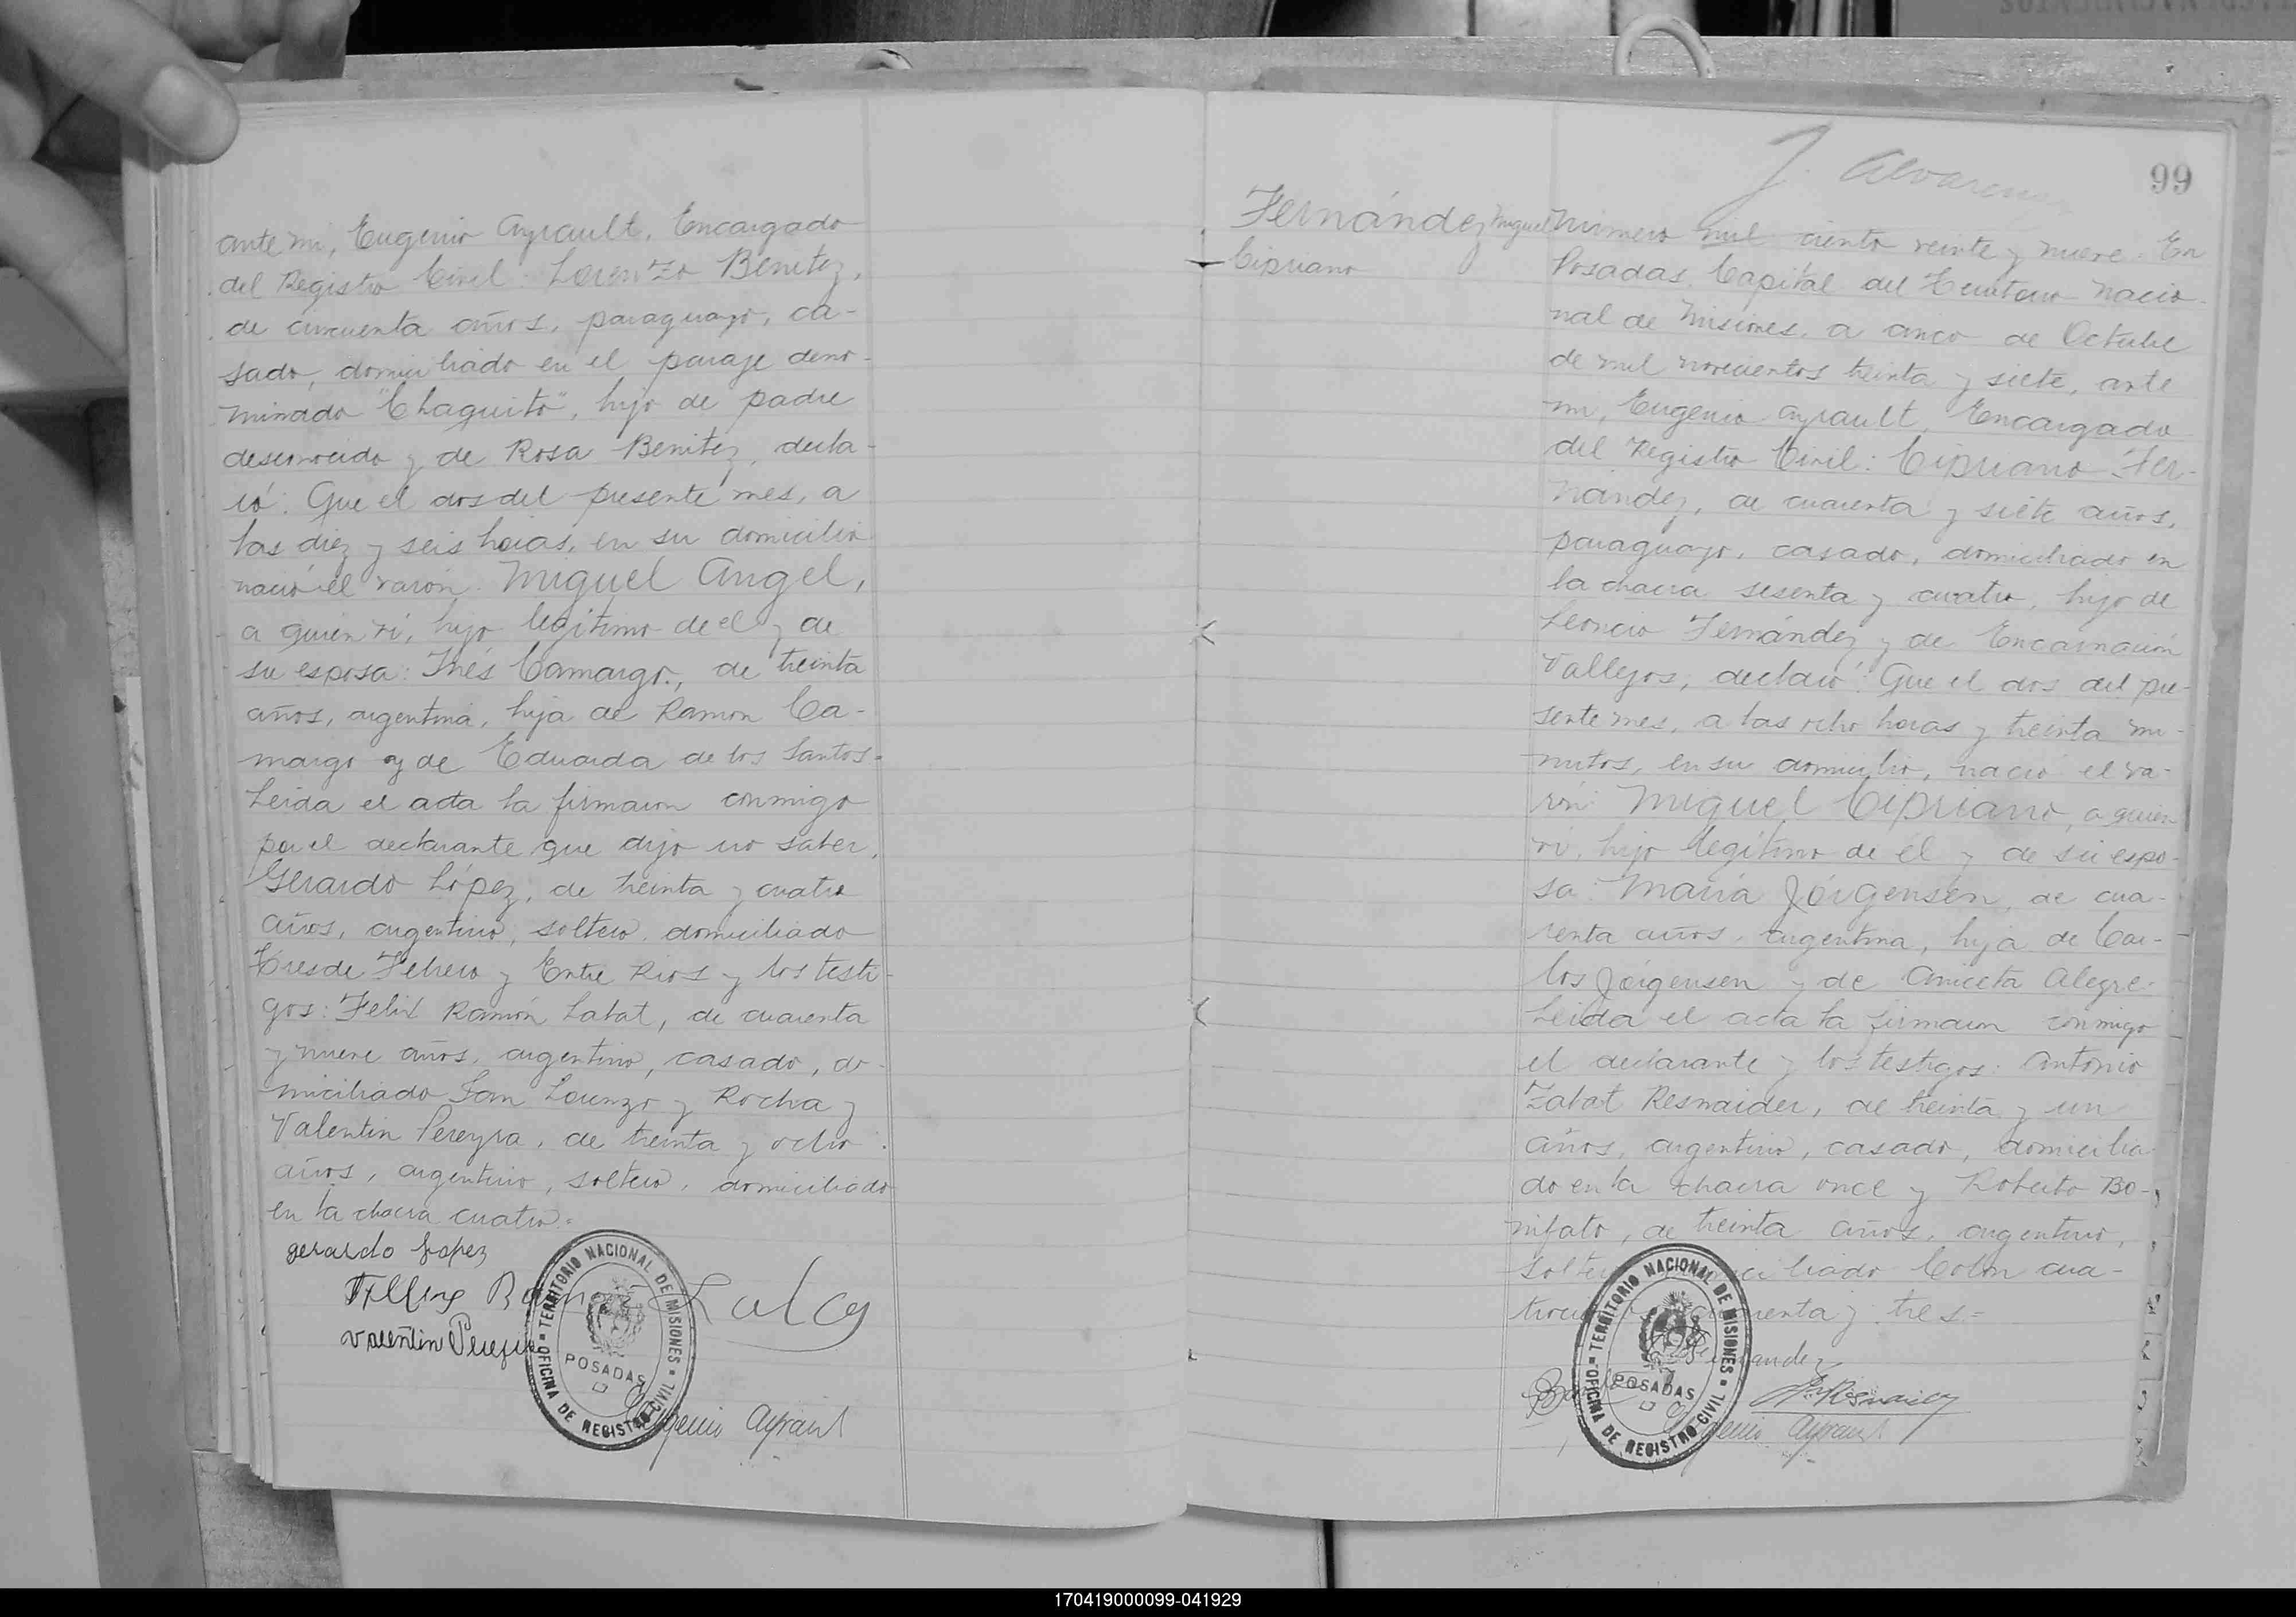 ante mi, Eugenio Ayrault, Encargado
del Registro Civil: Lorenzo Benitez,
de cincuenta años, paraguayo, ca-
sado, domiciliado en el paraje deno-
minado "Chaquito", hijo de padre
desconocido y de Rosa Benitez, decla-
ró: Que el dos del presente mes, a
las diez y seis horas, en su domicilio
nació el varón Miguel Angel,
a quien ví, hijo legítimo de el y de
su esposa: Inés Camargo, de treinta
años, argentina, hija de Ramon Ca-
margo y de Eduarda de los Santos.
Leida el acta la firmaron conmigo
por el declarante que dijo no saber,
Gerardo López, de treinta y cuatro
años, argentino, soltero, domiciliado
Tres de Febrero y Entre Rios y los testi-
gos: Felix Ramón Labat, de cuarenta
y nueve años, argentino, casado, do-
miciliado San Lorenzo y Rocha y
Valentin Pereyra, de treinta y ocho
años, argentino, soltero, domiciliado
en la chacra cuatro.=
gerardo Lopez
TERRITORIO NACIONAL DE MISIONES
OFICINA DE REGISTRO CIVIL
POSADAS
Eugenio Ayrault
99
Fernández Miguel
Cipriano
Número mil ciento veinte y nueve. En
Posadas, Capital del Territorio Nacio-
nal de Misiones, a cinco de Octubre
de mil novecientos treinta y siete, ante
mi, Eugenio Ayrault, Encargado
del Registro Civil: Cipriano Fer-
nández, de cuarenta y siete años,
paraguayo, casado, domiciliado en
la chacra sesenta y cuatro, hijo de
Leoncio Fernández y de Encarnación
Vallejos, declaró: Que el dos del pre-
sente mes, a las ocho horas y treinta mi-
nutos, en su domicilio, nació el va-
rón: Miguel Cipriano, a quien
ví, hijo legítimo de él y de su espo-
sa: María Jörgensen, de cua-
renta años, argentina, hija de Car-
los Jörgensen y de Aniceta Alegre.
Leida el acta la firmaron conmigo
el declarante y los testigos: Antonio
Zabat Resnaider, de treinta y un
años, argentino, casado, domicilia-
do en la chacra once y Roberto Bo-
nifato, de treinta años, argentino,
liado Colón cua-
y tres=
Fernandez
TERRITORIO NACIONAL DE MISIONES
OFICINA DE REGISTRO CIVIL
POSADAS
Eugenio Ayrault
170419000099-041929